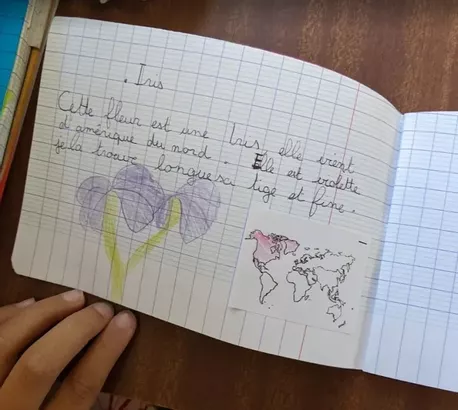 . Iris
Cette fleur est une Iris, elle vient
d'amérique du nord. Elle est violette
je la trouve longue sa tige et fine.